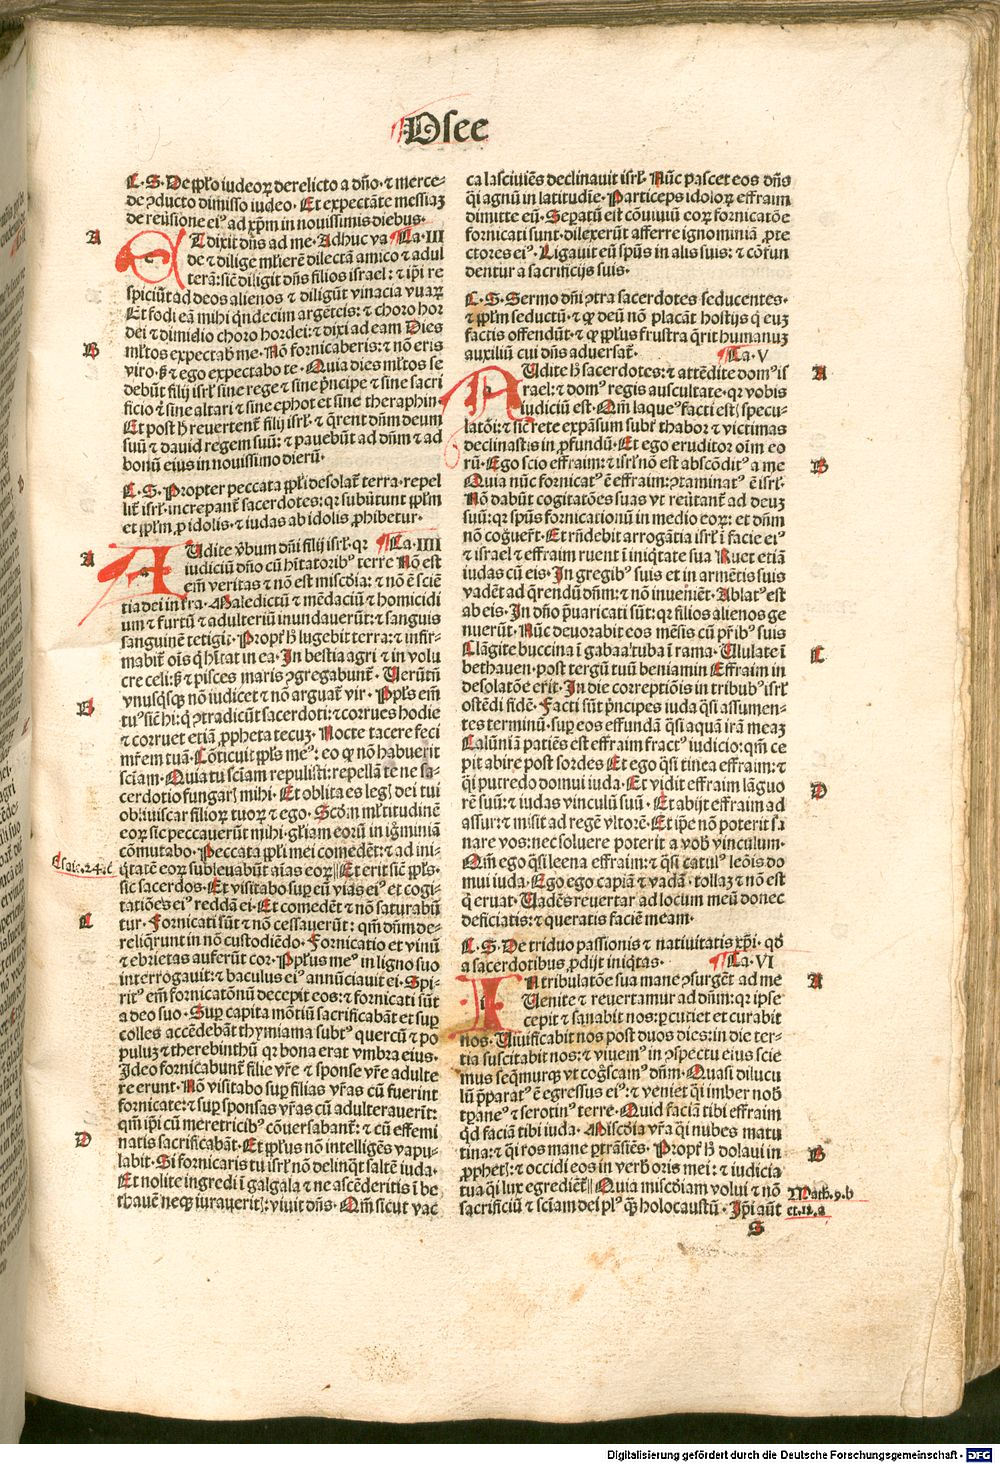 Osee
C.S. De pplo iudeoꝝ derelicto a dño. ⁊ merce-
de ꝯducto dimisso iudeo. Et expectãte messiaꝫ
de reũsione eiꝰ ad xp̃m in nouissimis diebus.
A
ET dixit dñs ad me. Adhuc va Ca. III
de ⁊ dilige ml̃ierẽ dilectã amico ⁊ adul
terã: sic̃ diligit dñs filios israel: ⁊ ip̃i re
spiciũt ad deos alienos ⁊ diligũt vinacia vuaꝝ
Et fodi eã mihi q̃ndecim argẽteis: ⁊ choro hor
dei ⁊ dimidio choro hordei: ⁊ dixi ad eam Dies
B
ml̃tos expectab̃ me. Nõ fornicaberis: ⁊ nõ eris
viro. sꝫ ⁊ ego expectabo te. Quia dies ml̃tos se
debũt filij isrl̃ sine rege ⁊ sine p̃ncipe ⁊ sine sacri
ficio ⁊ sine altari ⁊ sine ephot et sine theraphin.
Et post h̃ reuertent̃ filij isrl̃ ⁊ q̃rent dñm deum
suũ ⁊ dauid regem suũ: ⁊ pauebũt ad dñm ⁊ ad
bonũ eius in nouissimo dierũ.
C.S. Propter peccata pp̃li desolat̃ terra. repel
lit̃ isrl̃. increpant̃ sacerdotes: qꝛ subũtunt pp̃lm
et pp̃lm ꝓ idolis. ⁊ iudas ab idolis ꝓhibetur.
A
AUdite ṽbum dñi filij isrl̃. qꝛ Ca. IIII
iudiciũ dño cũ hĩtatoribꝰ terre Nõ est
em̃ veritas ⁊ nõ est misc̃dia: ⁊ nõ ẽ sciẽ
tia dei in t̃ra. Maledictũ ⁊ mẽdaciũ ⁊ homicidi
um ⁊ furtũ ⁊ adulteriũ inundauerũt: ⁊ sanguis
sanguinẽ tetigit. Propt̃ h̃ lugebit terra: ⁊ infir-
mabit̃ oĩs q̃ hĩtat in ea. In bestia agri ⁊ in volu
cre celi: sꝫ ⁊ pisces maris ꝯgregabunt̃. Uerũtñ
vnusq̃sqꝫ nõ iudicet ⁊ nõ arguat̃ vir. Pp̃ls em̃
B
tuꝰ sic̃ hi: q̃ ꝯtradicũt sacerdoti: ⁊ corrues hodie
⁊ corruet etiã ꝓpheta tecuꝫ. Nocte tacere feci
mr̃em tuã. Cõticuit pp̃ls meꝰ: eo ꝙ nõ habuerit
sciam̃. Quia tu sciam̃ repulisti: repellã te ne sa-
cerdotio fungarꝭ mihi. Et oblita es legꝭ dei tui
obliuiscar filioꝝ tuoꝝ ⁊ ego. Scd̃m ml̃titudinẽ
eoꝝ sic peccauerũt mihi. gl̃iam eorũ in ig̃miniã
cõmutabo. Peccata pp̃li mei comedẽt: ⁊ ad ini-
Esaie.24.a
q̃tatẽ eoꝝ subleuabũt aĩas eoꝝ Et erit sic̃ pp̃ls.
sic sacerdos. Et visitabo sup eũ vias eiꝰ et cogi-
tatiões eiꝰ reddã ei. Et comedẽt ⁊ nõ saturabũ
C
tur. Fornicati sũt ⁊ nõ cessauerũt: qm̃ dñm de-
reliq̃runt in nõ custodiẽdo. Fornicatio et vinũ
⁊ ebrietas auferũt cor. Pp̃lus meꝰ in ligno suo
interrogauit: ⁊ baculus eiꝰ annũciauit ei. Spi-
ritꝰ em̃ fornicatõnũ decepit eos: ⁊ fornicati sũt
a deo suo. Sup capita mõtiũ sacrificabãt et sup
colles accẽdebãt thymiama subtꝰ quercũ ⁊ po
puluꝫ ⁊ therebinthũ qꝛ bona erat vmbra eius.
Ideo fornicabunt̃ filie vr̃e ⁊ sponse vr̃e adulte
re erunt. Nõ visitabo sup filias vr̃as cũ fuerint
fornicate: ⁊ sup sponsas vr̃as cũ adulterauerĩt:
qm̃ ip̃i cũ meretricibꝰ cõuersabant̃: ⁊ cũ effemi
D
natis sacrificabãt. Et pp̃lus nõ intelligẽs vapu-
labit. Si fornicaris tu isrl̃ nõ delinq̃t saltẽ iuda.
Et nolite ingredi ĩ galgala ⁊ ne ascẽderitis ĩ be
thauẽ neqꝫ iuraueritꝭ: viuit dñs. Qm̃ sicut vac
ca lasciuiẽs declinauit isrl̃. Nũc pascet eos dñs
q̃i agnũ in latitudĩe. Particeps idoloꝝ effraim
dimitte eũ. Sepatũ est cõuiuiũ eoꝝ fornicatõe
fornicati sunt. dilexerũt afferre ignominiã ꝓte
ctores eiꝰ. Ligauit eũ spũs in alis suis: ⁊ cõfun
dentur a sacrificijs suis.
C.S. Sermo dñi ꝯtra sacerdotes seducentes.
⁊ pp̃lm seductũ. ⁊ ꝙ deũ nõ placãt hostijs q̃ euꝫ
factis offendũt. ⁊ ꝙ pp̃lus frustra q̃rit humanuꝫ
auxiliũ cui dñs aduersat̃. Ca. V
A
AUdite h̃ sacerdotes: ⁊ attẽdite domꝰ is
rael: ⁊ domꝰ regis auscultate. qꝛ vobis
iudiciũ est. Qm̃ laqueꝰ facti estꝭ specu-
latõi: ⁊ sic̃ rete expãsum suꝑ thabor ⁊ victimas
declinastis in ꝓfundũ. Et ego eruditor oĩm eo
B
rũ. Ego scio effraim: ⁊ isrl̃ nõ est abscõditꝰ a me
Quia nũc fornicatꝰ ẽ effraim: ꝯtaminatꝰ ẽ isrl̃.
Nõ dabũt cogitatões suas vt reũtant̃ ad deuꝫ
suũ: qꝛ spũs fornicationũ in medio eoꝝ: et dñm
nõ cog̃uert̃. Et rñdebit arrogãtia isrl̃ ĩ facie eiꝰ
⁊ israel ⁊ effraim ruent ĩ iniq̃tate sua Ruet etiã
iudas cũ eis. In gregibꝰ suis et in armẽtis suis
vadẽt ad q̃rendũ dñm: ⁊ nõ inueniẽt. Ablatꝰ est
ab eis. In dño p̃uaricati sũt: qꝛ filios alienos ge
nuerũt. Nũc deuorabit eos mẽsis cũ p̃tibꝰ suis
C
Clãgite buccina ĩ gabaa: tuba ĩ rama. Ululate ĩ
bethauen. post tergũ tuũ beniamin Effraim in
desolatõe erit. In die correptiõis in tribubꝰ isrl̃
ostẽdi fidẽ. Facti sũt p̃ncipes iuda q̃si assumen-
tes terminũ. sup eos effundã q̃si aquã irã meaꝫ
Calũniã patiẽs est effraim fractꝰ iudicio: qm̃ ce
pit abire post sordes Et ego q̃si tinea effraim: ⁊
D
q̃si putredo domui iuda. Et vidit effraim lãguo
rẽ suũ: ⁊ iudas vinculũ suũ. Et abijt effraim ad
assur: ⁊ misit ad regẽ vltorẽ. Et ip̃e nõ poterit sa
nare vos: nec soluere poterit a vob̃ vinculum.
Qm̃ ego q̃si leena effraim: ⁊ q̃si catulꝰ leõis do
mui iuda. Ego ego capiã ⁊ vadã. tollaꝫ ⁊ nõ est
q̃ eruat. Uadẽs reuertar ad locum meũ donec
deficiatis: ⁊ queratis faciẽ meam.
C.S. De triduo passionis ⁊ natiuitatis xp̃i. qd̃
a sacerdotibus ꝓdijt iniq̃tas. Ca. VI
A
IN tribulatõe sua mane ꝯsurgẽt ad me
Uenite ⁊ reuertamur ad dñm: qꝛ ipse
cepit ⁊ sanabit nos: ꝑcutiet et curabit
nos. Uiuificabit nos post duos dies: in die ter-
tia suscitabit nos: ⁊ viuemꝰ in ꝯspectu eius scie
mus seq̃murqꝫ vt cog̃scamꝰ dñm. Quasi dilucu
lũ p̃paratꝰ ẽ egressus eiꝰ: ⁊ veniet q̃i imber nob̃
tp̃aneꝰ ⁊ serotinꝰ terre. Quid faciã tibi effraim
qd̃ faciã tibi iuda. Misc̃dia vr̃a q̃i nubes matu
B
tina: ⁊ q̃i ros mane ꝑtrãsiẽs. Propt̃ h̃ dolaui in
ꝓphetꝭ: ⁊ occidi eos in verb̃ oris mei: ⁊ iudicia
tua q̃i lux egrediẽt̃ Quia misc̃diam volui ⁊ nõ
Math.9.b
sacrificiũ ⁊ sciam̃ dei plꝰ qꝫ holocaustũ. Ip̃i aũt
et.12.a
S
Digitalisierung gefördert durch die Deutsche Forschungsgemeinschaft - DFG